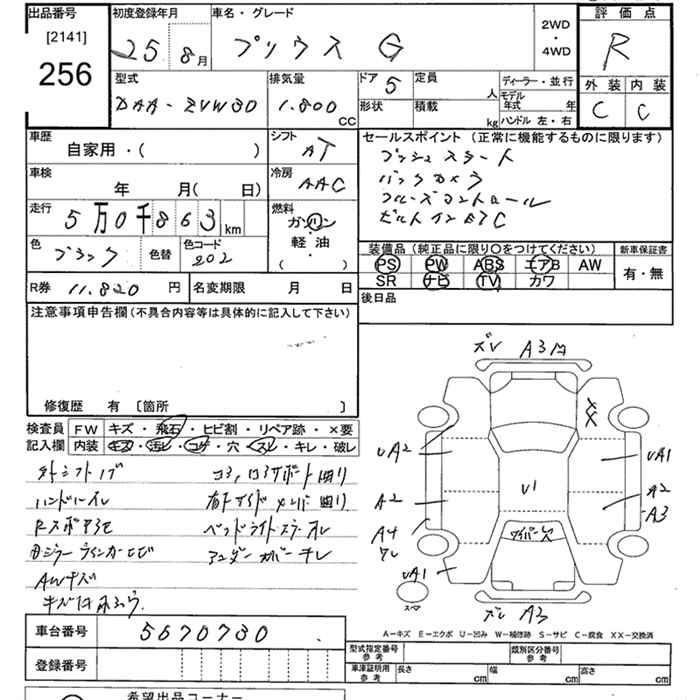 出品番号
[2141]
256
初度登録年月
25 8月
車名・グレード
プリウス G
2WD
・
4WD
評価点
R
外装 内装
C C
型式
DAA-ZVW30
排気量
1.800 CC
ドア 5
定員 人
形状
積載 kg
ディーラー・並行
モデル年式 年
ハンドル 左・右
車歴
自家用・( )
シフト AT
車検
年 月( 日)
冷房 AAC
走行
5万0千863 km
燃料
ガソリン
軽油
・
( )
色 ブラック
色替
色コード 202
R券 11.820 円
名変期限 月 日
セールスポイント(正常に機能するものに限ります)
プッシュスタート
バックカメラ
クルーズコントロール
ビルトインETC
装備品(純正品に限り〇をつけてください)
PS PW ABS エアB AW
SR ナビ TV カワ
新車保証書
有・無
後日品
注意事項申告欄(不具合内容等は具体的に記入して下さい)
修復歴 有 〔箇所 〕
検査員記入欄
FW キズ・飛石・ヒビ割・リペア跡・×要
内装 キズ・汚レ・コゲ・穴・スレ・キレ・破レ
ハンドルスレ
ヘッドライトステーオレ
AWキズ
アンダーカバーキレ
ズレ A3
XX
UA2
UA1
A2
A2
A3
A4
ワレ
UA1
U1
ワイパーレス
スペア
ズレ A3
A-キズ E-エクボ U-凹み W-補修跡 S-サビ C-腐食 XX-交換済
車台番号 5670730
登録番号
型式指定番号 参考
類別区分番号 参考
車庫証明用 参考
長さ cm
幅 cm
高さ cm
希望出品コーナー